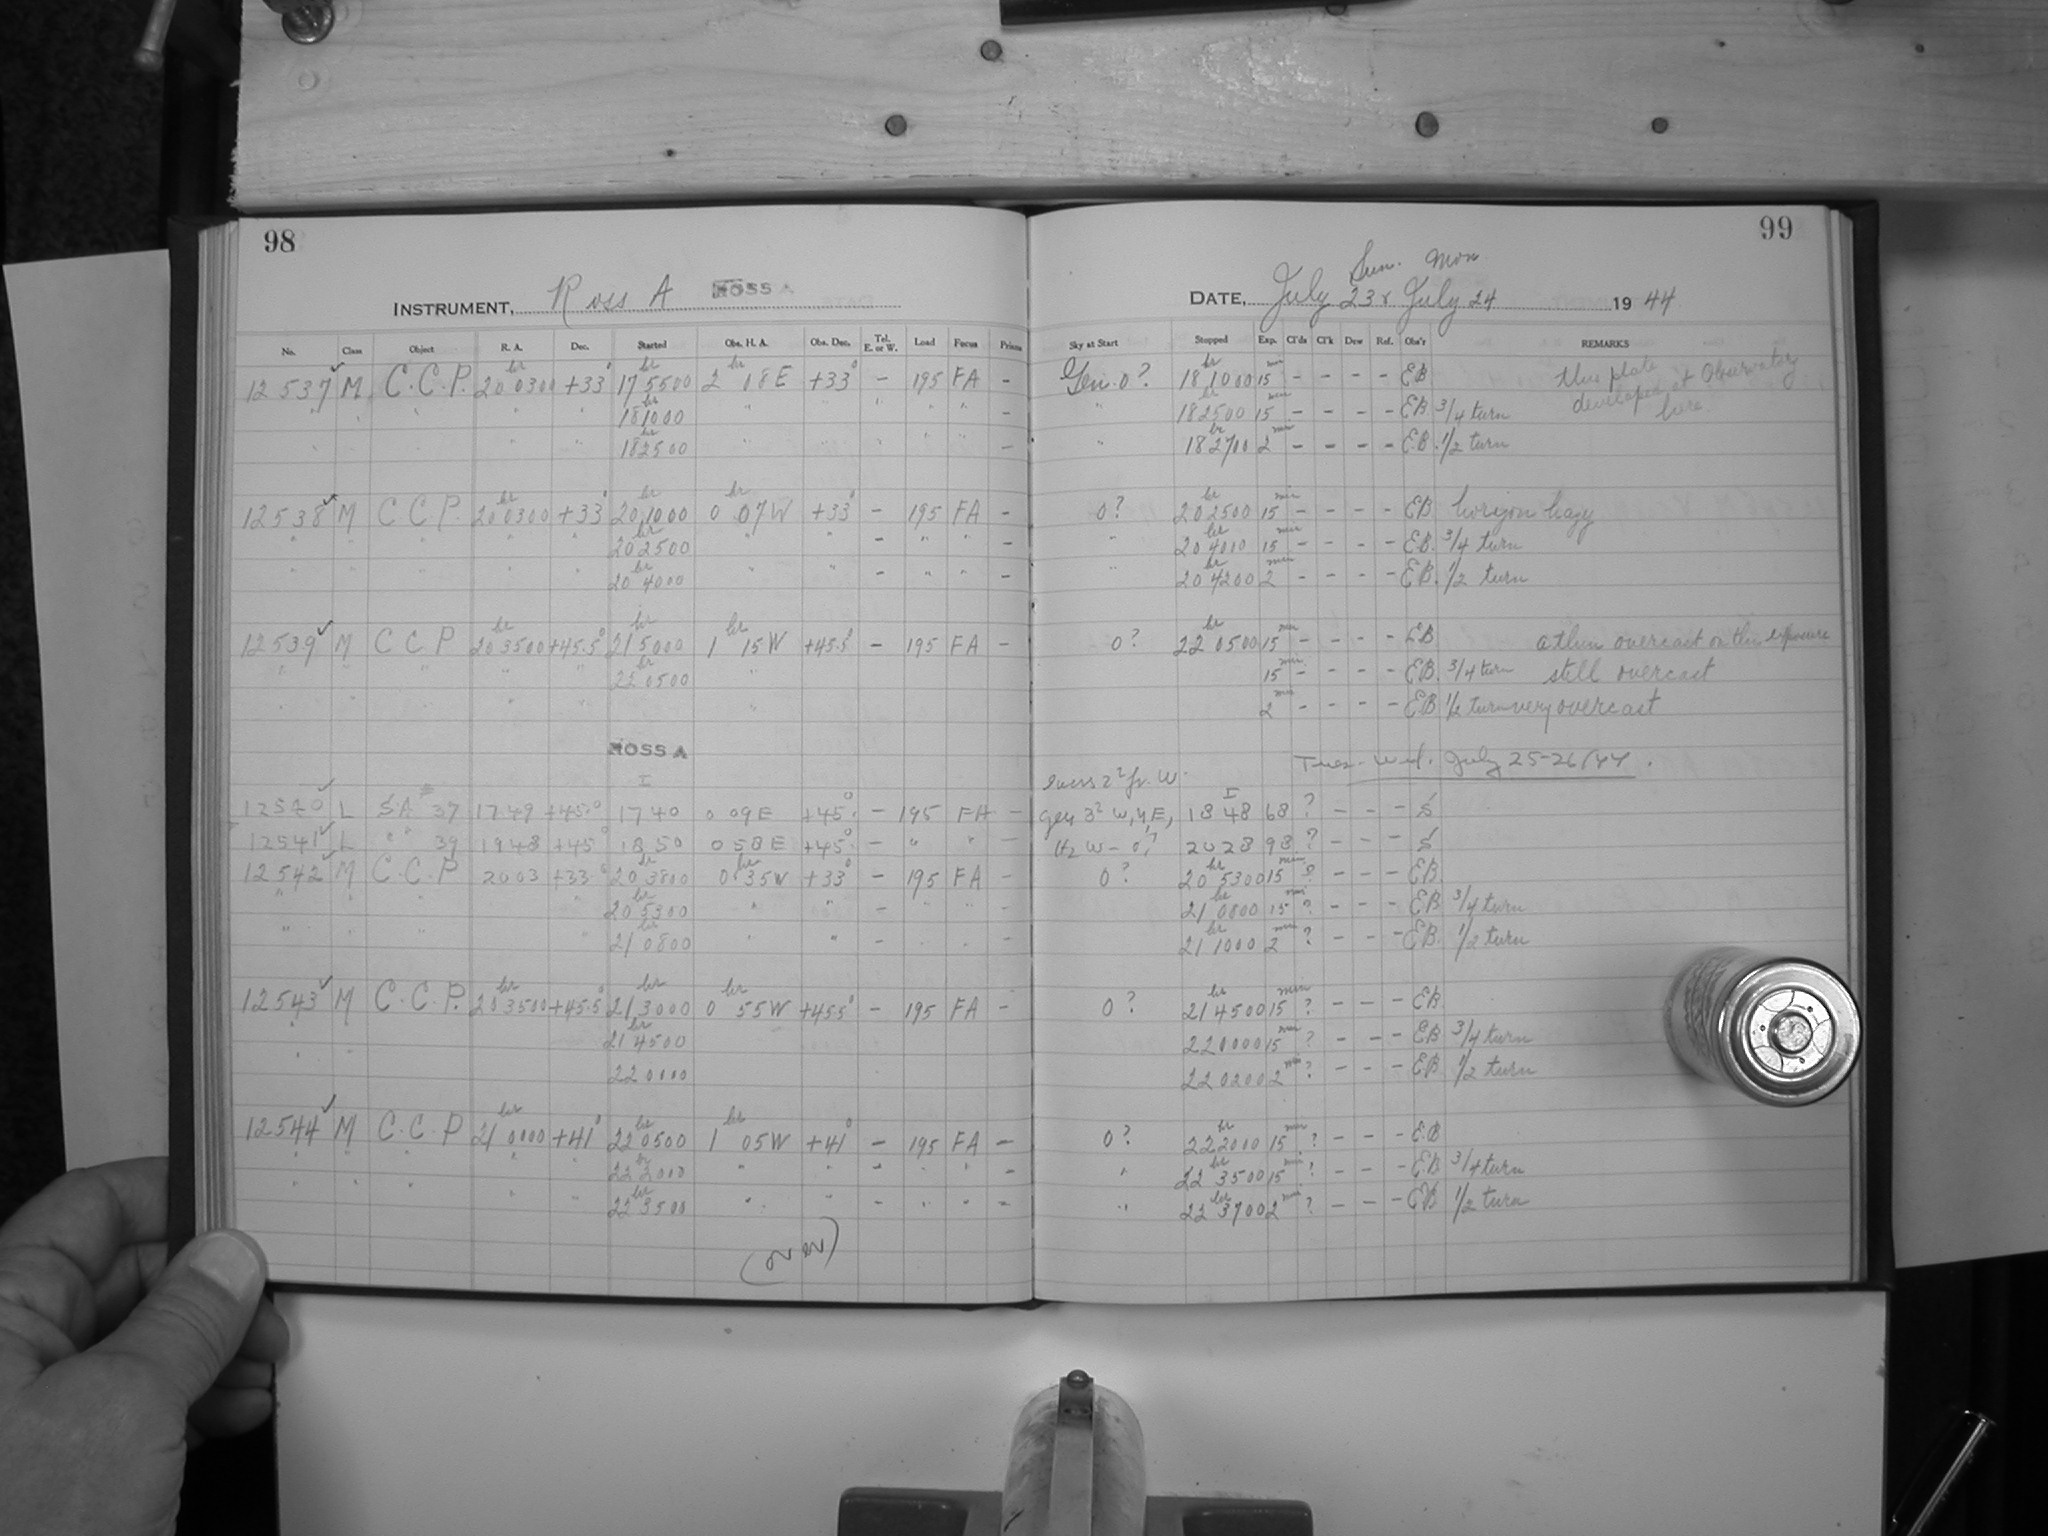 98
INSTRUMENT, Ross A ROSS A
No. Class Object R. A. Dec. Started Obs. H. A. Obs. Dec. Tel. E. or W. Load Focus Prisms
12537 ✓ M C.C.P. 20 0300 +33° 17 5500 2 08 E +33° - 195 FA -
" " " " 18 1000 " " " " " " -
" " " " 18 2500 " " " " " " -
12538 ✓ M C C P. 20 0300 +33 20 1000 0 07 W +33° - 195 FA -
" " " " " 20 2500 " " - " " -
" " " " " 20 4000 " " - " " -
12539 ✓ M C C P 20 3500 +45.5° 21 5000 1 15 W +45.5° - 195 FA -
" " " " 22 0500 "
" " " " "
ROSS A
12540 ✓ L SA # 37 1749 +45° 1740 0 09 E +45° - 195 FA -
12541 ✓ L " " 39 1948 +45° 1850 0 58 E +45° - " " -
12542 ✓ M C.C.P 2003 +33° 20 3800 0 35 W +33° - 195 FA -
" " " " 20 5300 " " - " " -
" " " " 21 0800 " " - " " -
12543 ✓ M C.C.P. 20 3500 +45.5° 21 3000 0 55 W +45.5° - 195 FA -
" 21 4500
" " 22 0000
12544 ✓ M C.C.P 21 0000 +41° 22 0500 1 05 W +41° - 195 FA -
" " " " " 22 2000 " " " " " -
" " " " " 22 3500 " " - " " -
(over)
99
Sun. Mon
DATE, July 23 & July 24 19 44
Sky at Start Stopped Exp. Cl'ds Cl'k Dew Ref. Obs'r REMARKS
Gen. 0? 18 1000 15 min - - - - EB this plate developed at Observatory here
" 18 2500 15 min - - - - EB. 3/4 turn
" 18 2700 2 min - - - - E.B. 1/2 turn
0? 20 2500 15 min - - - - EB horizon hazy
" 20 4000 15 min - - - - EB. 3/4 turn
" 20 4200 2 min - - - - EB. 1/2 turn
0? 22 0500 15 min - - - - EB a thin overcast on this exposure
15 min - - - - EB. 3/4 turn still overcast
2 min - - - - EB 1/2 turn very overcast
Tues. Wed. July 25-26/44.
gen 3² W, 4 E, 1848 68 ? - - - S
2028 98 ? - - - S
0? 20 5300 15 min ? - - - EB.
21 0800 15 min ? - - - EB 3/4 turn
21 1000 2 min ? - - - EB. 1/2 turn
0? 21 4500 15 min ? - - - EB.
22 0000 15 min ? - - - EB 3/4 turn
22 0200 2 min ? - - - EB 1/2 turn
0? 22 2000 15 min ? - - - E.B
" 22 3500 15 min ? - - - EB 3/4 turn
" 22 3700 2 min ? - - - EB 1/2 turn